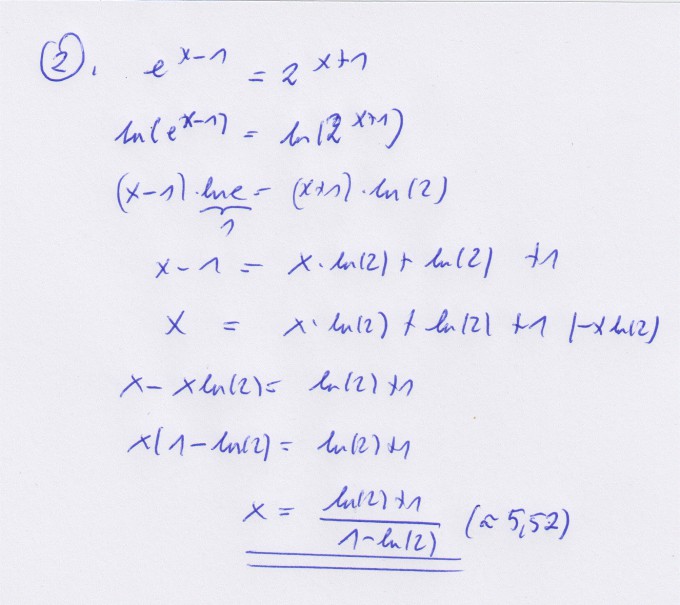 ②. e^(x-1) = 2^(x+1)
ln(e^(x-1)) = ln(2^(x+1))
(x-1)·ln e = (x+1)·ln(2)
1
x-1 = x·ln(2) + ln(2) +1
x = x·ln(2) + ln(2) +1 |-x ln(2)
x - x ln(2) = ln(2)+1
x(1-ln(2) = ln(2)+1
x = (ln(2)+1)/(1-ln(2)) (≈5,52)